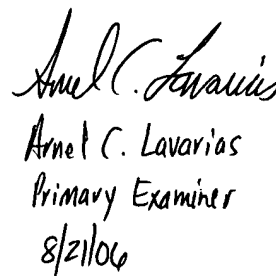 Arnel C. Lavarias
Arnel C. Lavarias
Primary Examiner
8/21/06